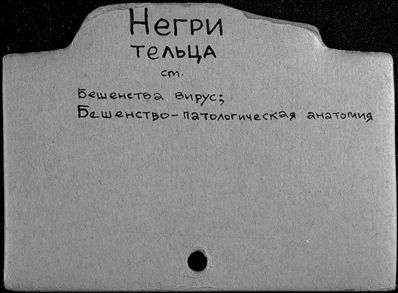 Негри
тельца
ст.
Бешенства вирус;
Бешенство-патологическая анатомия